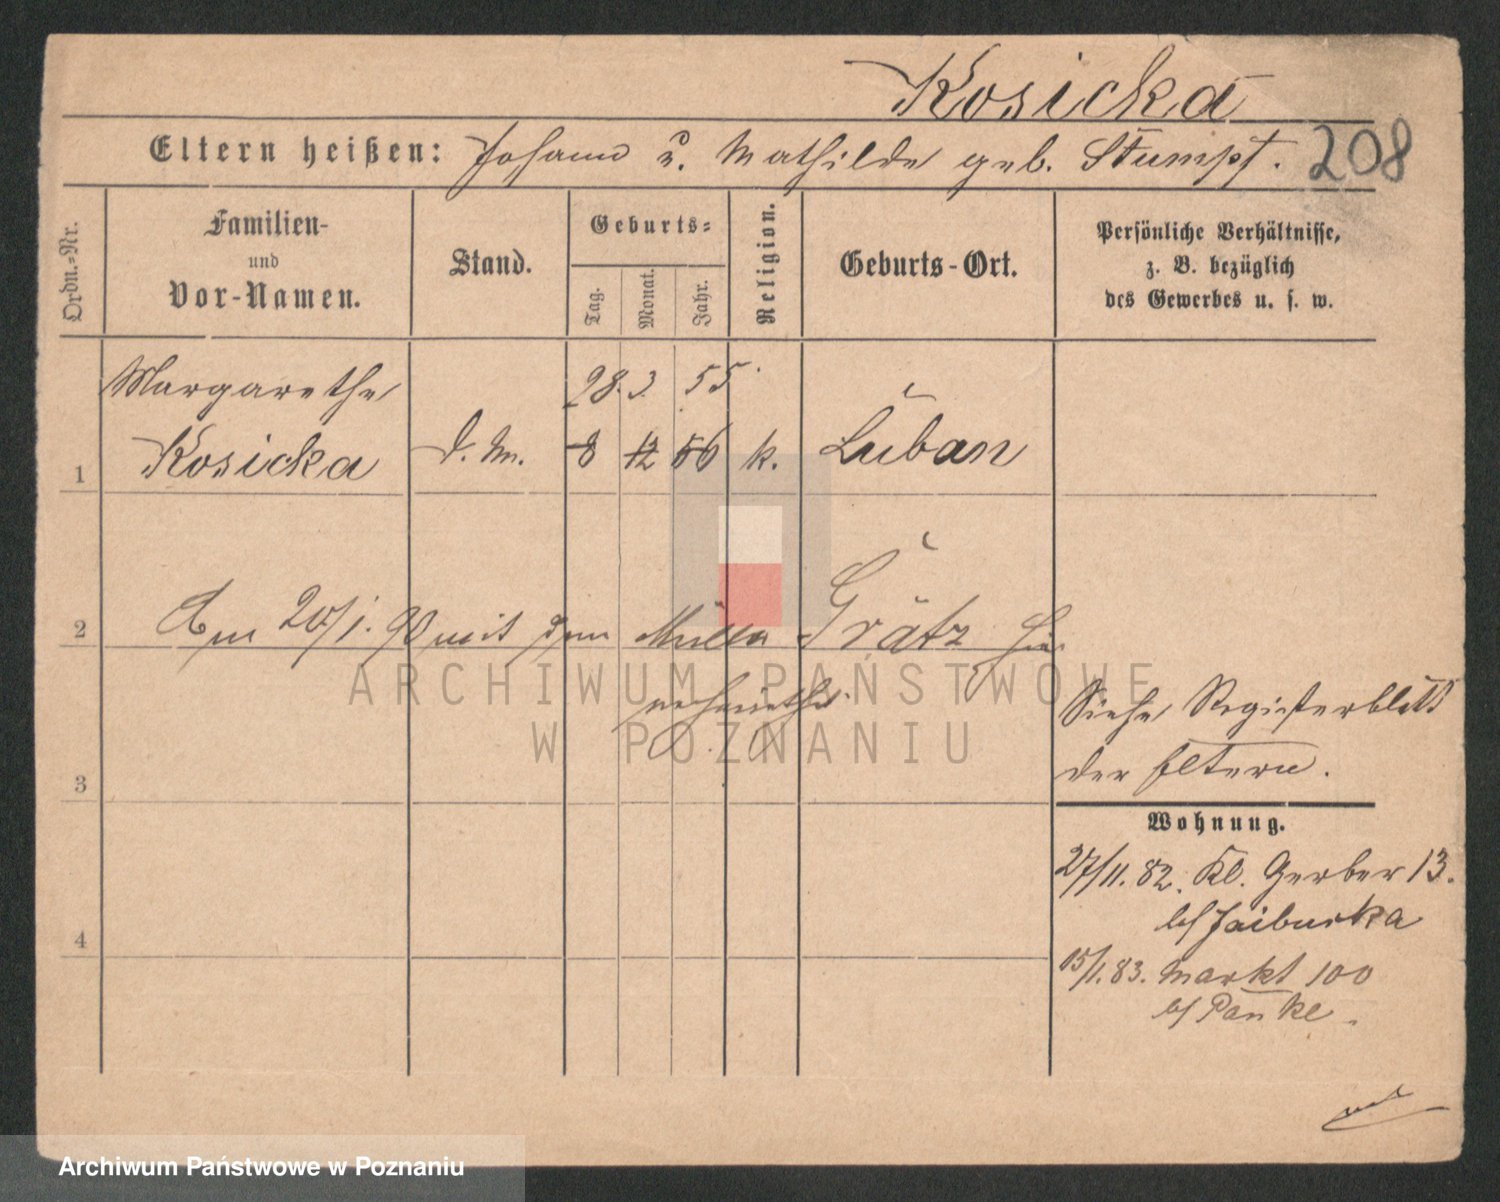 Kosicka
Eltern heißen: Johann u. Mathilde geb. Stumpf.
208
Ordn.-Nr.
Familien-
und
Vor-Namen.
Stand.
Geburts-
Tag.
Monat.
Jahr.
Religion.
Geburts-Ort.
Persönliche Verhältnisse,
z. B. bezüglich
des Gewerbes u. s. w.
Margarethe 28. 3. 55.
1 Kosicka d. M. 8 12 56 k. Luban
2 Am 20/1. 90 mit dem Müller Grätz hier
verheirathet.
Siehe Registerblatt
der Eltern.
3
Wohnung.
27/11. 82. Kl. Gerber 13.
b/
4
15/1. 83. Markt 100
b/ Panke
ARCHIWUM PAŃSTWOWE
W POZNANIU
Archiwum Państwowe w Poznaniu